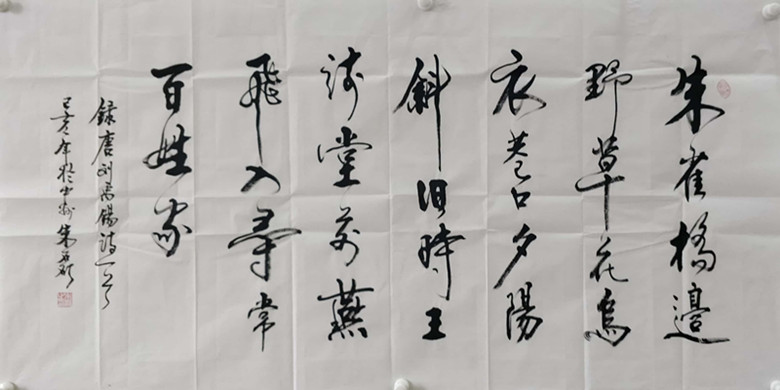 朱雀橋邊
野草花烏
衣巷口夕陽
斜旧時王
謝堂前燕
飛入尋常
百姓家
錄唐刘禹锡詩一首
己亥年